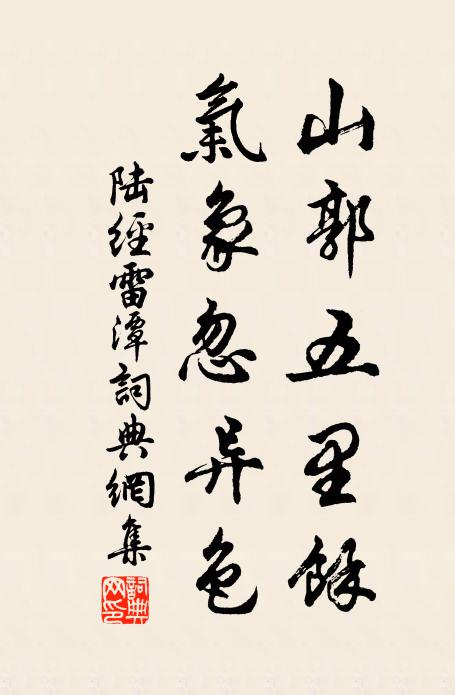 山郭五里餘
氣象忽异色
陆經雷潭詞典網集
詞典网印